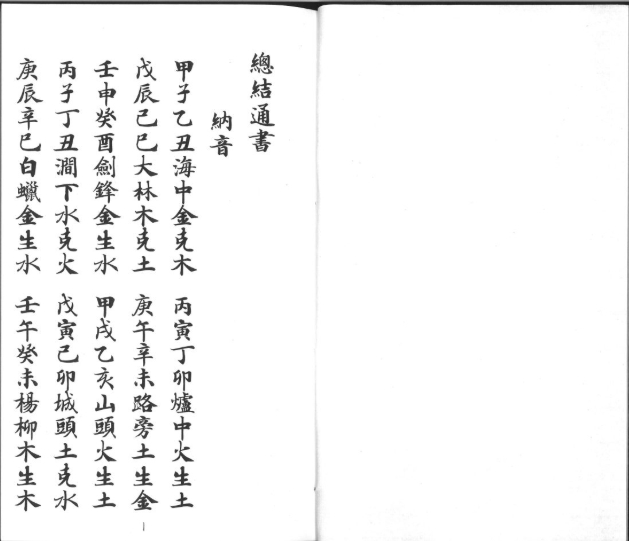 總結通書
納音
甲子乙丑海中金克木　丙寅丁卯爐中火生土
戊辰己巳大林木克土　庚午辛未路旁土生金
壬申癸酉劍鋒金生水　甲戌乙亥山頭火生土
丙子丁丑澗下水克火　戊寅己卯城頭土克水
庚辰辛巳白蠟金生水　壬午癸未楊柳木生木
1